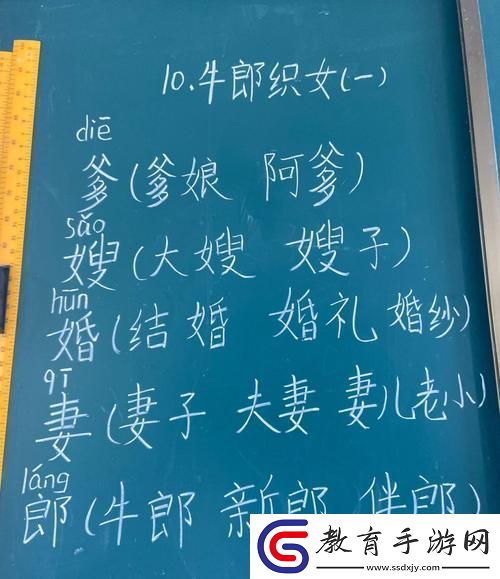 10.牛郎织女(一)
diē
爹(爹娘 阿爹)
sǎo
嫂(大嫂 嫂子)
hūn
婚(结婚 婚礼 婚纱)
qī
妻(妻子 夫妻 妻儿老小)
láng
郎(牛郎 新郎 伴郎)
教育手游网
www.ssdxjy.com